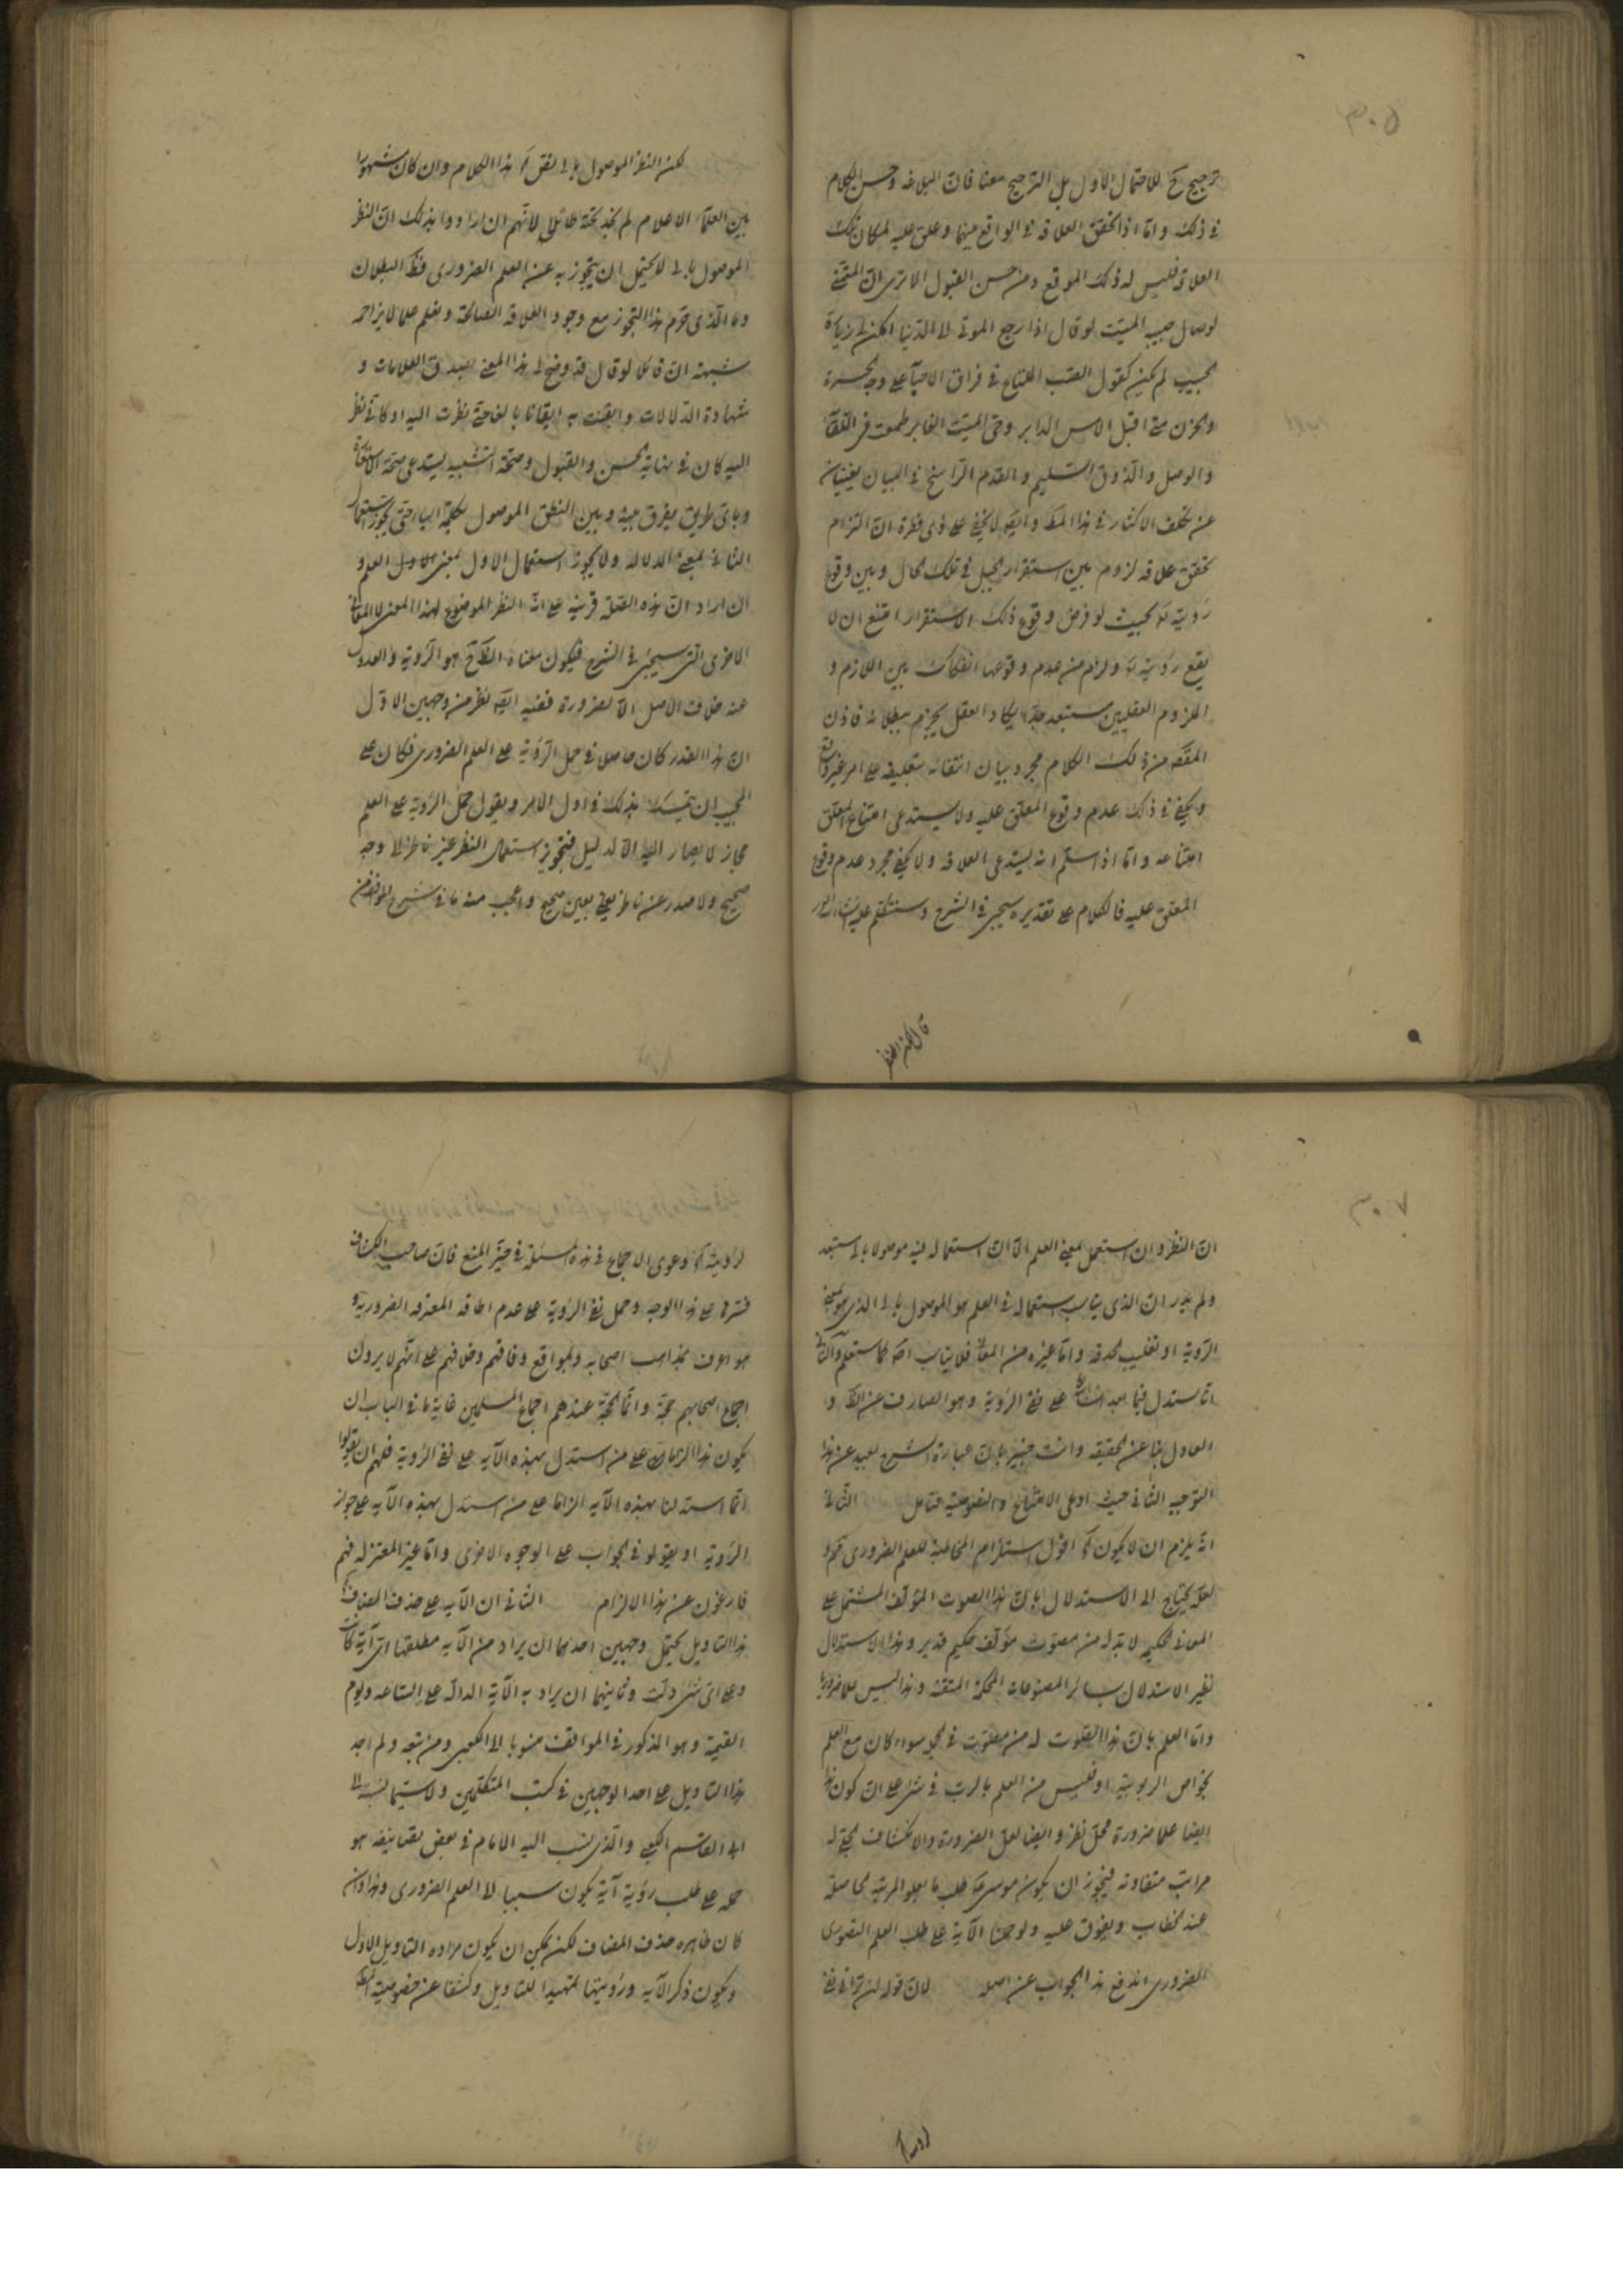 ٣٠٥
ترجيح ح للاحتمال الاول بل الترجيح معنا فان البلاغه وحسن الكلام
في ذلك واما اذا تحقق العلاقه في الواقع بينهما وعلق عليه لمكان تلك
العلاقه فليس له ذلك الموقع ومن حسن القبول الا ترى ان المتمني
لوصال حبيبه الميت لو قال اذا رجع الموتى الى الدنيا امكن لي زيارة
الحبيب لم يكن كقول الصب الملتاع في فراق الاحباء على وجه الحسرة
والحزن متى اقبل الامس الدابر وحي الميت الغابر طمعت في اللقاء
والوصل والذوق السليم والقدم الراسخ في البيان يغنيان
عن تكلف الاكثار في هذا المط وايضا لا يخفى على ذي فطرة ان التزام
تحقق علاقه لزوم بين استقرار الجبل في تلك الحال وبين وقوع
رؤيته تع بحيث لو فرض وقوع ذلك الاستقرار امتنع ان لا
يقع رؤيته تع ولزم من عدم وقوعها انفكاك بين اللازم و
الملزوم العقليين مستبعد جدا يكاد العقل يجزم ببطلانه فاذن
المقصد من ذلك الكلام مجرد بيان انتفائه بتعليقه على امر غير واقع
ويكفي في ذلك عدم وقوع المعلق عليه ولا يستدعي امتناع المعلق
امتناعه واما اذا سلم انه يستدعي العلاقه ولا يكفي مجرد عدم وقوع
المعلق عليه فالكلام على تقديره سيجئ في الشرح وسنتكلم عليه
قال لكن النظر
لكن النظر الموصول بالى نص آه هذا الكلام وان كان مشهورا
بين العلماء الاعلام لم نجد تحته طائل لانهم ان ارادوا بذلك ان النظر
الموصول بالى لا يحتمل ان يتجوز به عن العلم الضروري فظ البطلان
وما الذي حرم هذا التجوز مع وجود العلاقه الصالحة ونعلم علما لا يزاحمه
شبهة ان قائلا لو قال قد وضح لي هذا المعنى بصدق العلامات و
شهادة الدلالات وايقنت به ايقانا بالغا حتى نظرت اليه او كأني نظر
اليه كان في نهاية الحسن والقبول وصحة التشبيه يستدعي صحة الاستعارة
وباي طريق يفرق بينه وبين النطق الموصول بكلمة الباء حتى يجوز استعمال
الثاني بمعنى الدلالة ولا يجوز استعمال الاول بمعنى العلم و
ان اراد ان هذه الصلة قرينه على ان النظر الموضوع لهذا المعنى لا المعاني
الاخرى التي سيجئ في الشرح فيكون معناه الظ ح هو الرؤية والعدول
عنه خلاف الاصل الا لضرورة ففيه ايضا نظر من وجهين الاول
ان هذا القدر كان حاصلا في حمل الرؤية على العلم الضروري فكان على
المجيب ان يتمسك بذلك في اول الامر ويقول حمل الرؤية على العلم
مجاز لا يصار اليه الا لدليل فتجويز استعمال النظر غير ناظر الى وجه
صحيح ولا صدر عن ناظر يعني بعين صحيح واعجب منه ما في شرح المواقف من
٣٠٧
ان النظر وان استعمل بمعنى العلم الا ان استعماله فيه موصولا بالى مستبعد
ولم يدر ان الذي يناسب استعماله في العلم هو الموصول بالى الذي هو بمعنى
الرؤية او تقليب الحدقه واما غيره من المعاني فلا يناسب اصلا كما ستعلم والثاني
انا نستدل فيما بعد ان شاء الله على نفي الرؤية وهو الصارف عن الظ و
العادل بنا عن الحقيقه وانت خبير بان عبارة الشرح بعيد عن هذا
التوجيه الثاني حيث ادعى الامتناع والنصوصيه فتامل الثاني
انه يلزم ان لا يكون آه اقول استلزام المخاطبة للعلم الضروري مم و
لعله يحتاج الى الاستدلال بان هذا الصوت المؤلف المشتمل على
المعاني الحكميه لا بد له من مصوت مؤلف حكيم قدير وهذا الاستدلال
نظير الاستدلال بسائر المصنوعات المحكمة المتقنه وهذا ليس علما ضروريا
واما العلم بان هذا الصوت له من مصوت في الجمله سواء كان مع العلم
بخواص الربوبيه او فليس من العلم بالرب في شئ على ان كون هذا
ايضا علما ضرورة محل نظر وايضا لعل الضرورة والانكشاف التجلي له
مراتب متفاوته فيجوز ان يكون موسى ع طلب ما يعلو المرتبة الحاصلة
عند الخطاب ويفوق عليه ولو حملنا الآية على طلب العلم التصوري
الضروري اندفع هذا الجواب عن اصله لان قوله لن تراني نفي
لرؤيته
لرؤيته آه دعوى الاجماع في هذه المسئلة في حيز المنع فان صاحب الكشاف
فسرها على هذا الوجه وحمل نفي الرؤية على عدم اطاقه المعرفه الضرورية و
هو اعرف بمذاهب اصحابه وبمواقع وفاقهم وخلافهم على انهم لا يرون
اجماع اصحابهم حجة وانما الحجة عندهم اجماع المسلمين غاية ما في الباب ان
يكون هذا الزاما على من استدل بهذه الآيه على نفي الرؤية فلهم ان يقولوا
انما استدلنا بهذه الآيه الزاما على من استدل بهذه الآيه على جواز
الرؤية او يقولو في الجواب على الوجوه الاخرى واما غير المعتزلة فهم
فارغون عن هذا الالزام الثاني ان الآيه على حذف المضاف
هذا التاويل يحتمل وجهين احدهما ان يراد من الآيه مطلقها اي آية كانت
وعلى اي شئ دلت وثانيهما ان يراد به الآية الدالة على الساعه ويوم
القيمة وهو المذكور في المواقف منسوبا الى الكعبي ومن تبعه ولم اجد
هذا التاويل على احد الوجهين في كتب المتكلمين ولا سيما نسبته الى
ابي القاسم الكعبي والذي ينسب اليه الامام في بعض تصانيفه هو
حمله على طلب رؤية آية يكون سببا للعلم الضروري وهذا وان
كان ظاهره حذف المضاف لكن يمكن ان يكون مراده التاويل الاول
ويكون ذكر الآيه ورؤيتها تمهيدا للتاويل وكشفا عن خصوصية